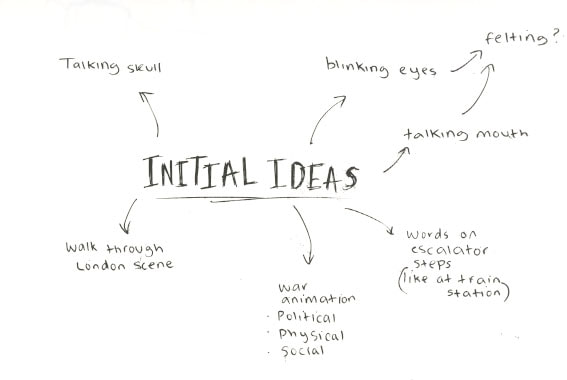 felting?
Talking skull
blinking eyes
talking mouth
INITIAL IDEAS
Walk through
London scene
words on
escalator
steps
(like at train
station)
war
animation
· Political
· Physical
· Social